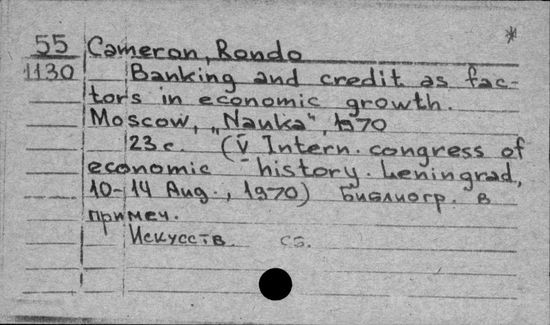 55 Cameron, Rondo *
1130 Banking and credit as fac-
tors in economic growth.
Moscow, „Nauka“, 1970
23 с. (V Intern. congress of
economic history. Leningrad,
10-14 Aug., 1970) Библиогр. в
примеч.
Искусств. сб.